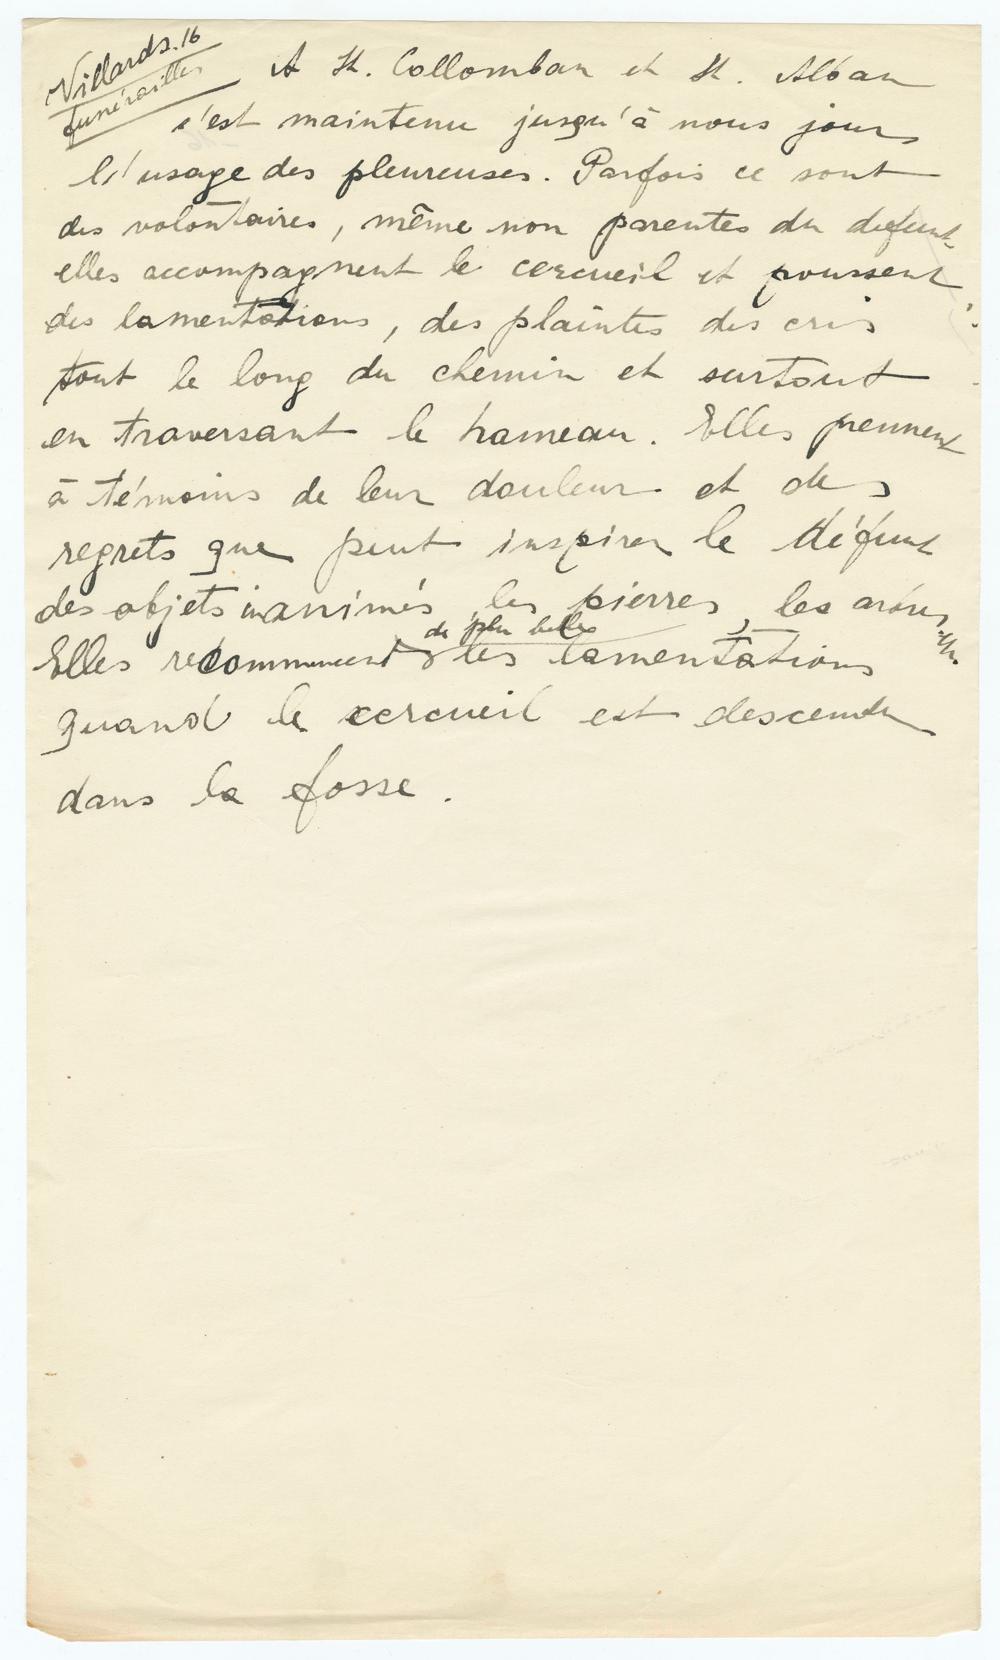 Villards. 16
funérailles
A St. Collomban et St. Alban
s'est maintenu jusqu'à nous jours
l'usage des pleureuses. Parfois ce sont
des volontaires, même non parentes du defunt
elles accompagnent le cercueil et poussent
des lamentations, des plaintes des cris
tout le long du chemin et surtout
en traversant le hameau. Elles prennent
à témoins de leur douleur et des
regrets que peut inspirer le défunt
des objets inanimés, les pierres, les arbres
de plus belle
Elles recommencent les lamentations
quand le cercueil est descendu
dans la fosse.